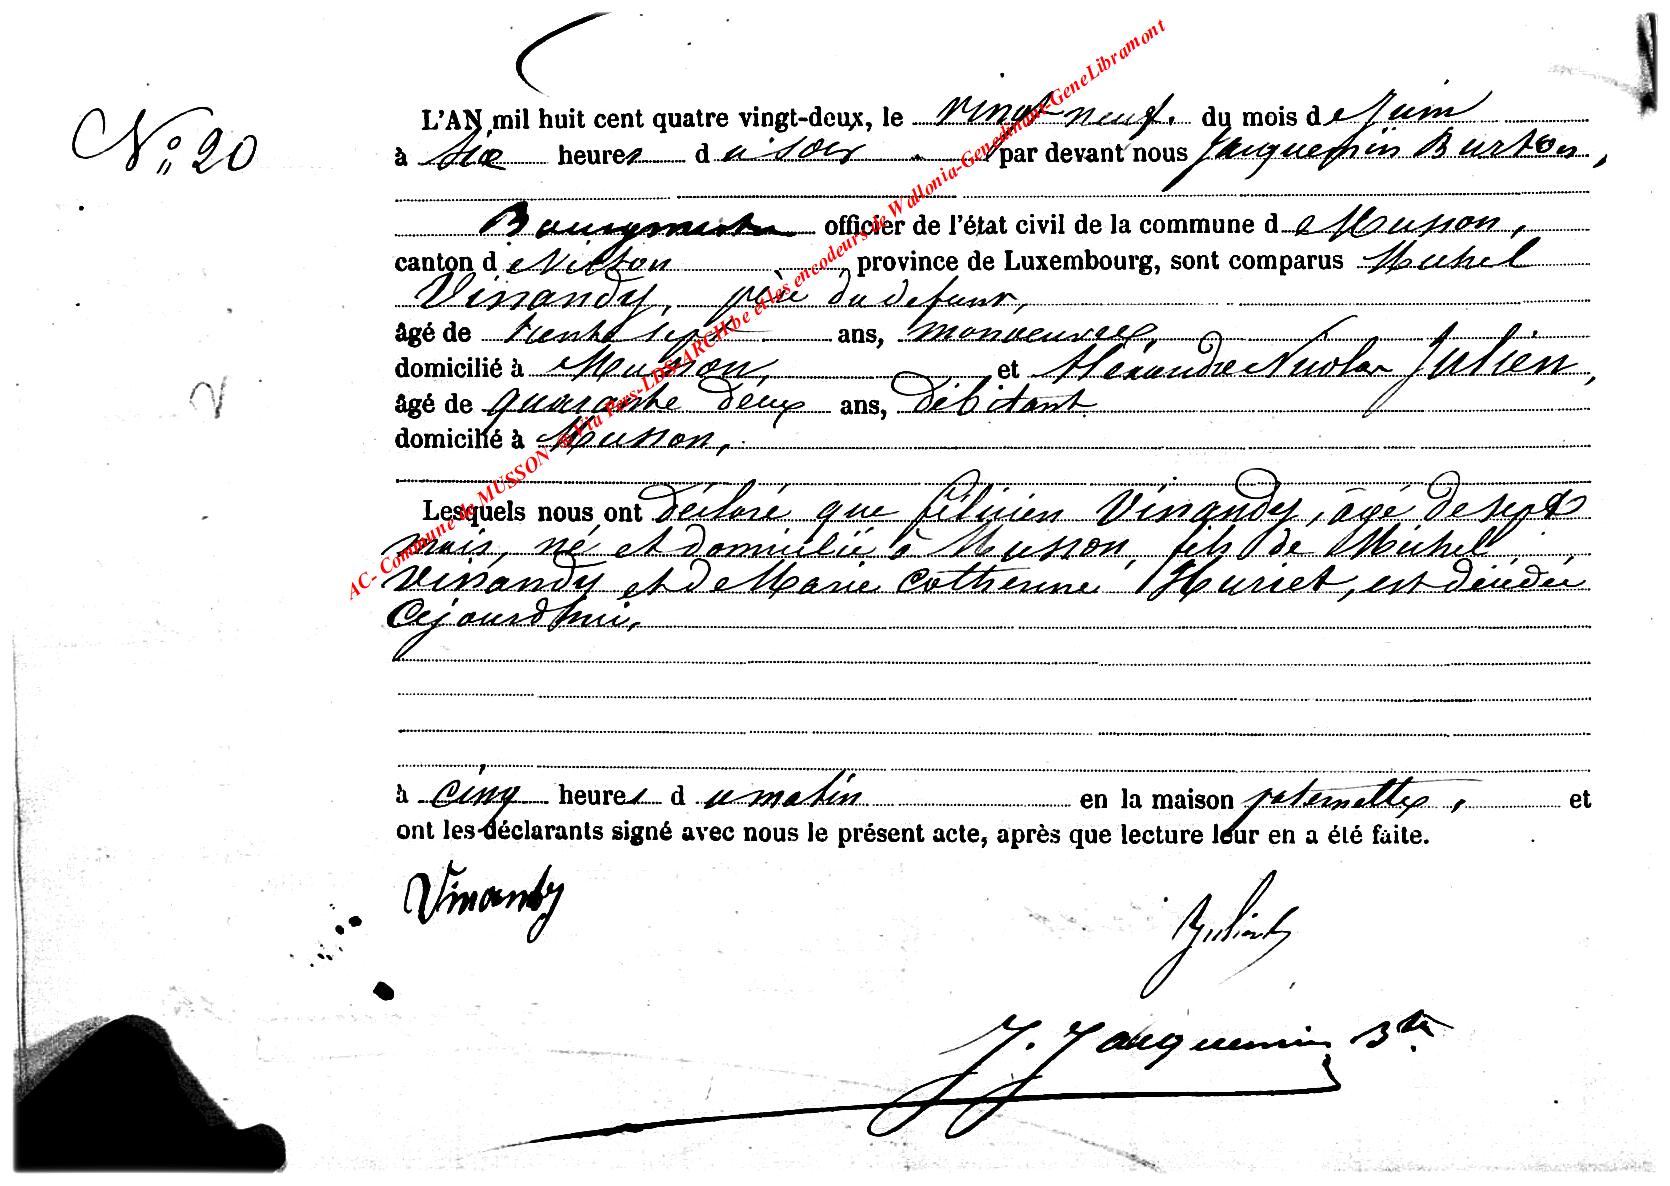 N° 20
L'AN mil huit cent quatre vingt-deux, le vingt neuf. du mois de Juin
à Six heures du soir par devant nous Jacquemin Burton,
Bourgmestre officier de l'état civil de la commune de Musson,
canton de Virton, province de Luxembourg, sont comparus Michel
Vinandy, père du defunt,
âgé de trente sept ans, manoeuvre,
domicilié à Musson, et Alexandre Nicolas Julien,
âgé de quarante deux ans, débitant
domicilié à Musson,
Lesquels nous ont déclaré que Félicien Vinandy, âgé de sept
mois, né et domicilié à Musson, fils de Michel
Vinandy et de Marie Catherine Huriet, est décédé
cejourd'hui,
à cinq heures du matin en la maison paternelle, et
ont les déclarants signé avec nous le présent acte, après que lecture leur en a été faite.
Vinandy
Julien
J. Jacquemin Btn
AC- Commune de MUSSON @ Via Pers-LDS-ARCH.be et les encodeurs de Wallonia-Genedinant-GeneLibramont